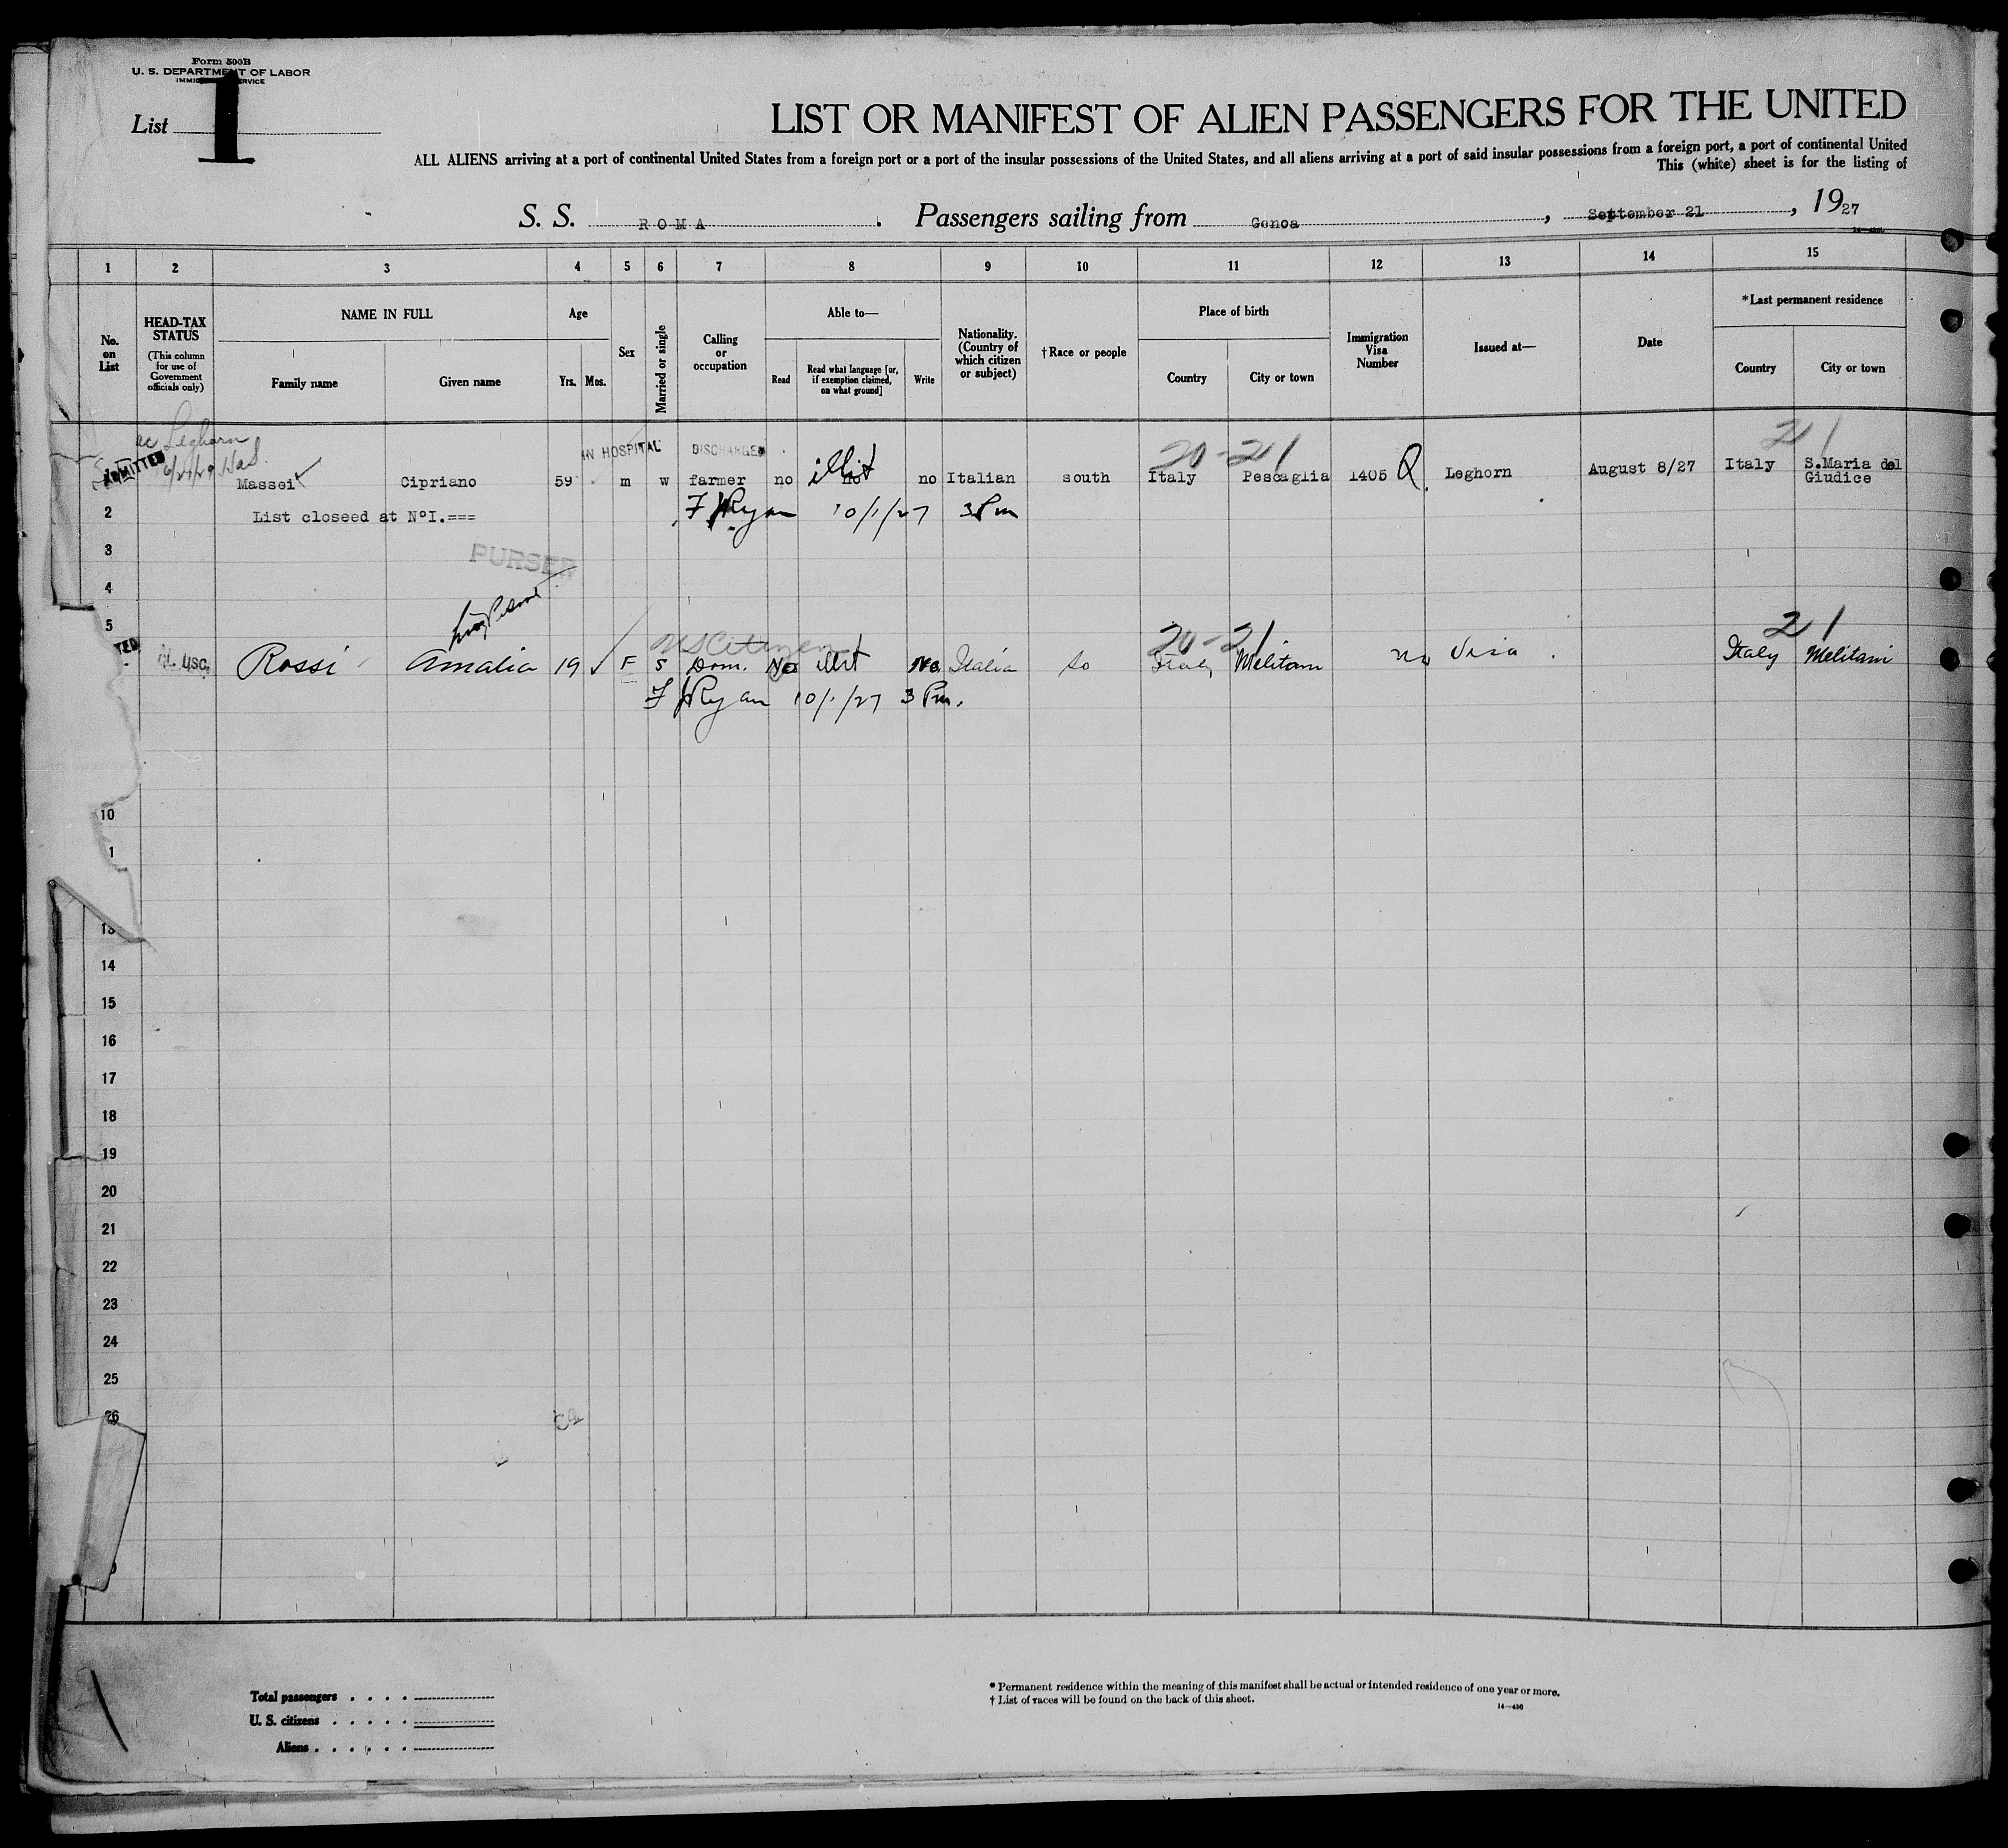 Form 500B
U. S. DEPARTMENT OF LABOR
List 1
LIST OR MANIFEST OF ALIEN PASSENGERS FOR THE UNITED
ALL ALIENS arriving at a port of continental United States from a foreign port or a port of the insular possessions of the United States, and all aliens arriving at a port of said insular possessions from a foreign port, a port of continental United
This (white) sheet is for the listing of
S. S. ROMA. Passengers sailing from Genoa, September 21, 1927
1 2 3 4 5 6 7 8 9 10 11 12 13 14 15
No. on List
HEAD-TAX STATUS (This column for use of Government officials only)
NAME IN FULL
Family name Given name
Age
Yrs. Mos.
Sex
Married or single
Calling or occupation
Able to—
Read Read what language [or, if exemption claimed, on what ground] Write
Nationality. (Country of which citizen or subject)
†Race or people
Place of birth
Country City or town
Immigration Visa Number
Issued at—
Date
*Last permanent residence
Country City or town
Leghorn
ADMITTED
IN HOSPITAL DISCHARGED 20-21 21
Massei Cipriano 59 m w farmer no illit no Italian south Italy Pescaglia 1405 Q Leghorn August 8/27 Italy S.Maria del Giudice
2 List closeed at N°I.=== F J Ryan 10/1/27 3 Pm
3
PURSER
4
5
US Citizen 20-21 21
usc Rossi Amalia 19 F S Dom. No illit No Italia So Italy Melitani no Visa Italy Melitani
F J Ryan 10/1/27 3 Pm.
10
1
13
14
15
16
17
18
19
20
21
22
23
24
25
26
Total passengers
U. S. citizens
Aliens
* Permanent residence within the meaning of this manifest shall be actual or intended residence of one year or more.
† List of races will be found on the back of this sheet.
14—430